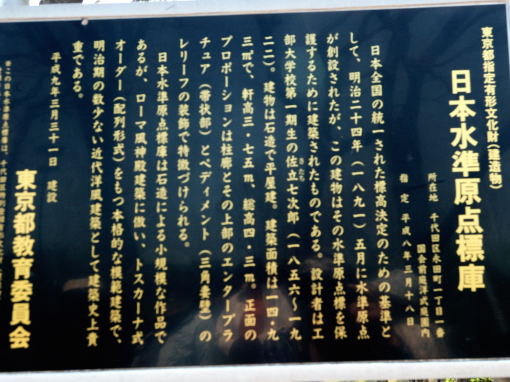 東京都指定有形文化財(建造物)
日本水準原点標庫
所在地 千代田区永田町一丁目一番
国会前庭洋式庭園内
指定 平成八年三月十八日
日本全国の統一された標高決定のための基準と
して、明治二十四年(一八九一)五月に水準原点
が創設されたが、この建物はその水準原点標を保
護するために建築されたものである。設計者は工
部大学校第一期生の佐立七次郎(一八五六～一九
さたち
二二)。建物は石造で平屋建。建築面積は一四・九
三㎡で、軒高三・七五m、総高四・三m。正面の
プロポーションは柱廊とその上部のエンタープラ
チュア(帯状部)とペディメント(三角妻壁)の
レリーフの装飾で特徴づけられる。
日本水準原点標庫は石造による小規模な作品で
あるが、ローマ風神殿建築に倣い、トスカーナ式
オーダー(配列形式)をもつ本格的な模範建築で、
明治期の数少ない近代洋風建築として建築史上貴
重である。
平成九年三月三十一日 建設
東京都教育委員会